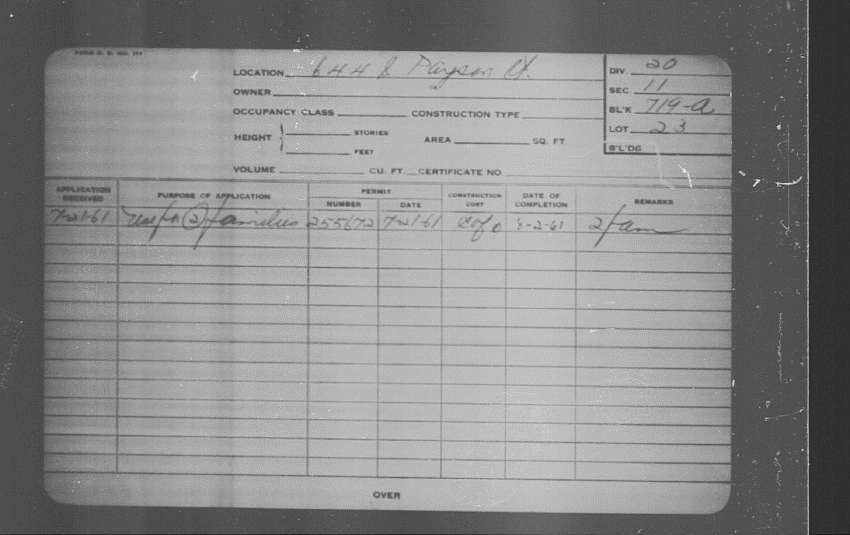 LOCATION 644 S Payson St.
OWNER
OCCUPANCY CLASS CONSTRUCTION TYPE
HEIGHT STORIES FEET AREA SQ. FT.
VOLUME CU. FT. CERTIFICATE NO.
DIV. 20
SEC. 11
BL'K 719-A
LOT 23
B'L'DG
APPLICATION RECEIVED PURPOSE OF APPLICATION PERMIT NUMBER DATE CONSTRUCTION COST DATE OF COMPLETION REMARKS
7-21-61 Use for (2) families 255672 7-21-61 C of O 8-2-61 2 fam
OVER